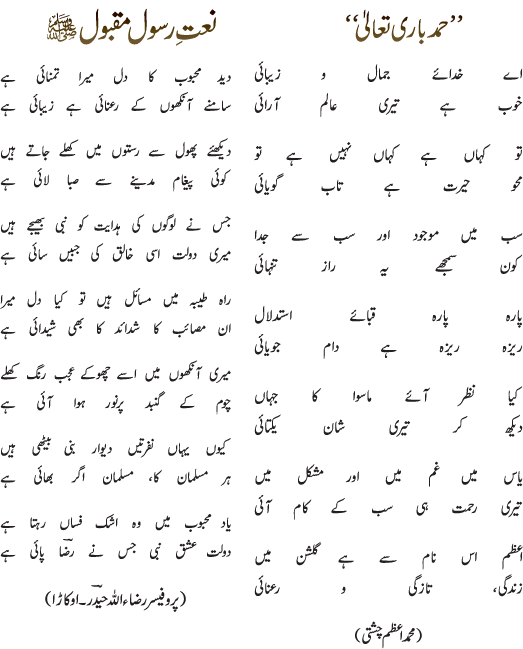 ’’حمد باری تعالیٰ‘‘
اے خدائے جمال و زیبائی
خوب ہے تیری عالم آرائی
تو کہاں ہے کہاں نہیں ہے تو
محو حیرت ہے تاب گویائی
سب میں موجود اور سب سے جدا
کون سمجھے یہ راز تنہائی
پارہ پارہ قبائے استدلال
ریزہ ریزہ ہے دام جویائی
کیا نظر آئے ماسوا کا جہاں
دیکھ کر تیری شان یکتائی
یاس میں غم میں اور مشکل میں
تیری رحمت ہی سب کے کام آئی
اعظم اس نام سے ہے گلشن میں
زندگی، تازگی و رعنائی
(محمد اعظم چشتی)
نعتِ رسول مقبول ﷺ
دید محبوب کا دل میرا تمنائی ہے
سامنے آنکھوں کے رعنائی ہے زیبائی ہے
دیکھئے پھول سے رستوں میں کھلے جاتے ہیں
کوئی پیغام مدینے سے صبا لائی ہے
جس نے لوگوں کی ہدایت کو نبی بھیجے ہیں
میری دولت اسی خالق کی جبیں سائی ہے
راہ طیبہ میں مسائل ہیں تو کیا دل میرا
ان مصائب کا شدائد کا بھی شیدائی ہے
میری آنکھوں میں اسے چھوکے عجب رنگ کھلے
چوم کے گنبد پرنور ہوا آئی ہے
کیوں یہاں نفرتیں دیوار بنی بیٹھی ہیں
ہر مسلمان کا، مسلمان اگر بھائی ہے
یاد محبوب میں وہ اشک فساں رہتا ہے
دولت عشق نبی جس نے رضاؔ پائی ہے
(پروفیسر رضاء اللہ حیدرؔ۔اوکاڑا)